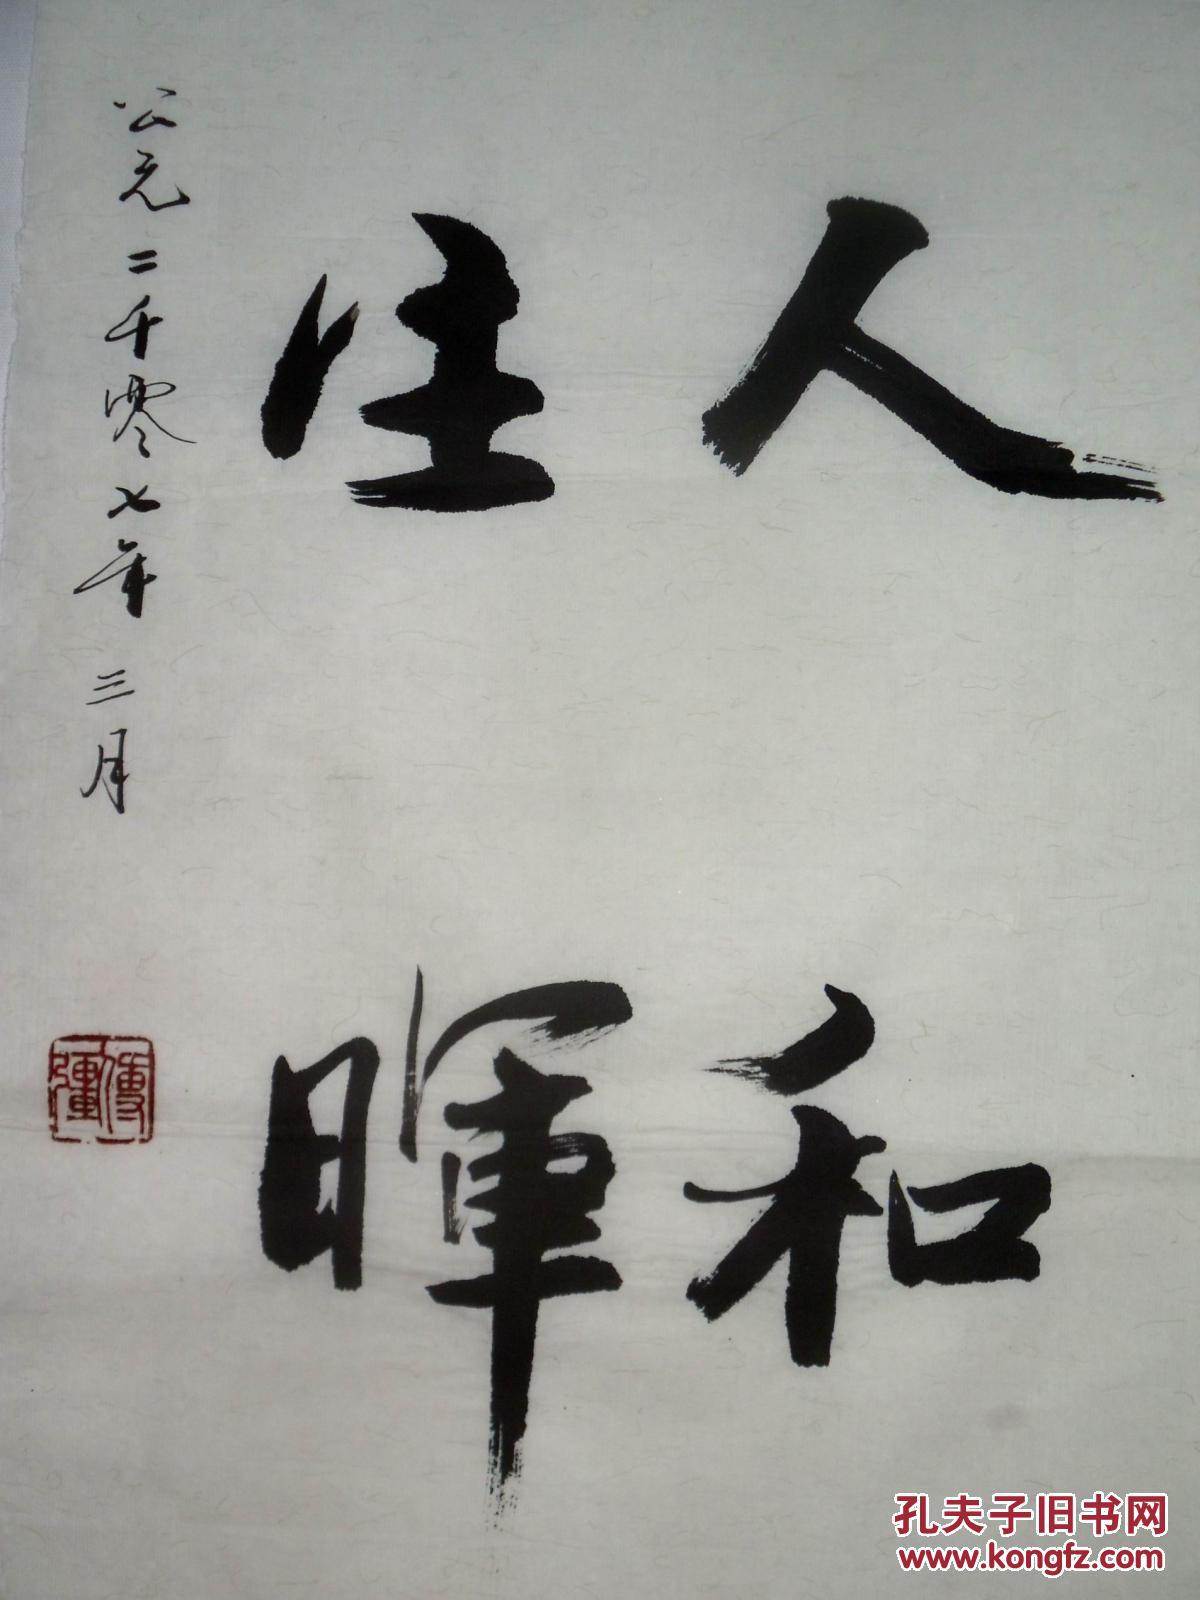 人和
生暉
公元二千零七年三月
孔夫子旧书网
www.kongfz.com